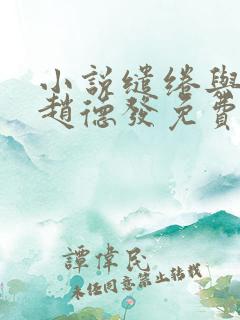 小說繾綣與
趙德發免費
譚偉民
未經同意禁止轉載